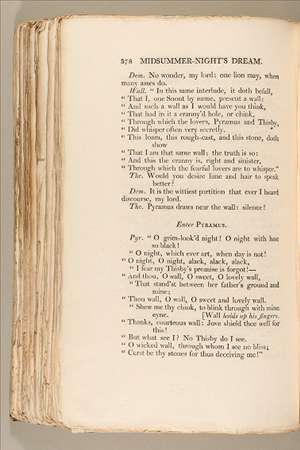 378 MIDSUMMER-NIGHT'S DREAM.
Dem. No wonder, my lord: one lion may, when
many asses do.
Wall. " In this same interlude, it doth befall,
" That I, one Snout by name, present a wall:
" And such a wall as I would have you think,
" That had in it a cranny'd hole, or chink,
" Through which the lovers, Pyramus and Thisby,
" Did whisper often very secretly.
" This loam, this rough-cast, and this stone, doth
show
" That I am that same wall; the truth is so:
" And this the cranny is, right and sinister,
" Through which the fearful lovers are to whisper."
The. Would you desire lime and hair to speak
better?
Dem. It is the wittiest partition that ever I heard
discourse, my lord.
The. Pyramus draws near the wall: silence!
Enter PYRAMUS.
Pyr. " O grim-look'd night! O night with hue
so black!
" O night, which ever art, when day is not!
" O night, O night, alack, alack, alack,
" I fear my Thisby's promise is forgot!—
" And thou, O wall, O sweet, O lovely wall,
" That stand'st between her father's ground and
mine;
" Thou wall, O wall, O sweet and lovely wall.
" Shew me thy chink, to blink through with mine
eyne. [Wall holds up his fingers.
" Thanks, courteous wall: Jove shield thee well for
this!
" But what see I? No Thisby do I see.
" O wicked wall, through whom I see no bliss;
" Curst be thy stones for thus deceiving me!"